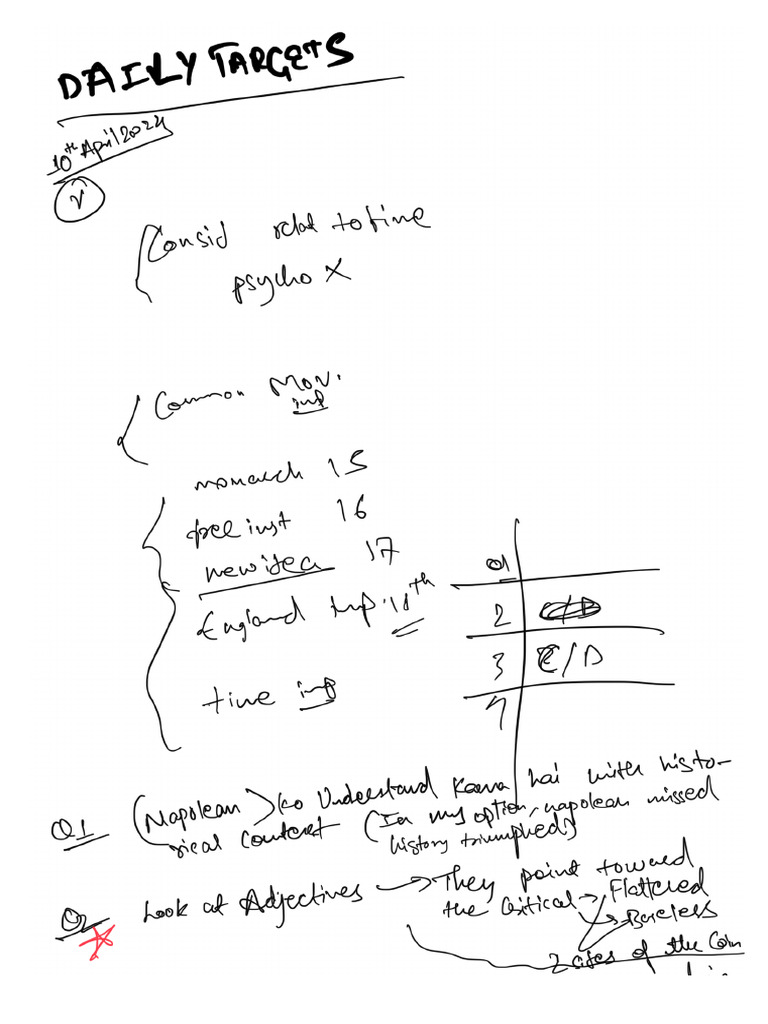 DAILY TARGETS
10th April 2024
Consid relat to time
psycho X
Common Mov.
imp
monarch 15
free inst 16
new idea 17
England imp. 18th
time imp
2 C/D
3 C/D
4
Q1 (Napolean) ko Understand karna hai with histo-
rical context (In my option, napolean missed
history triumphed)
Q2 Look at Adjectives → They point toward
the critical → Flattered
→ Baseless
2 sides of the Coin